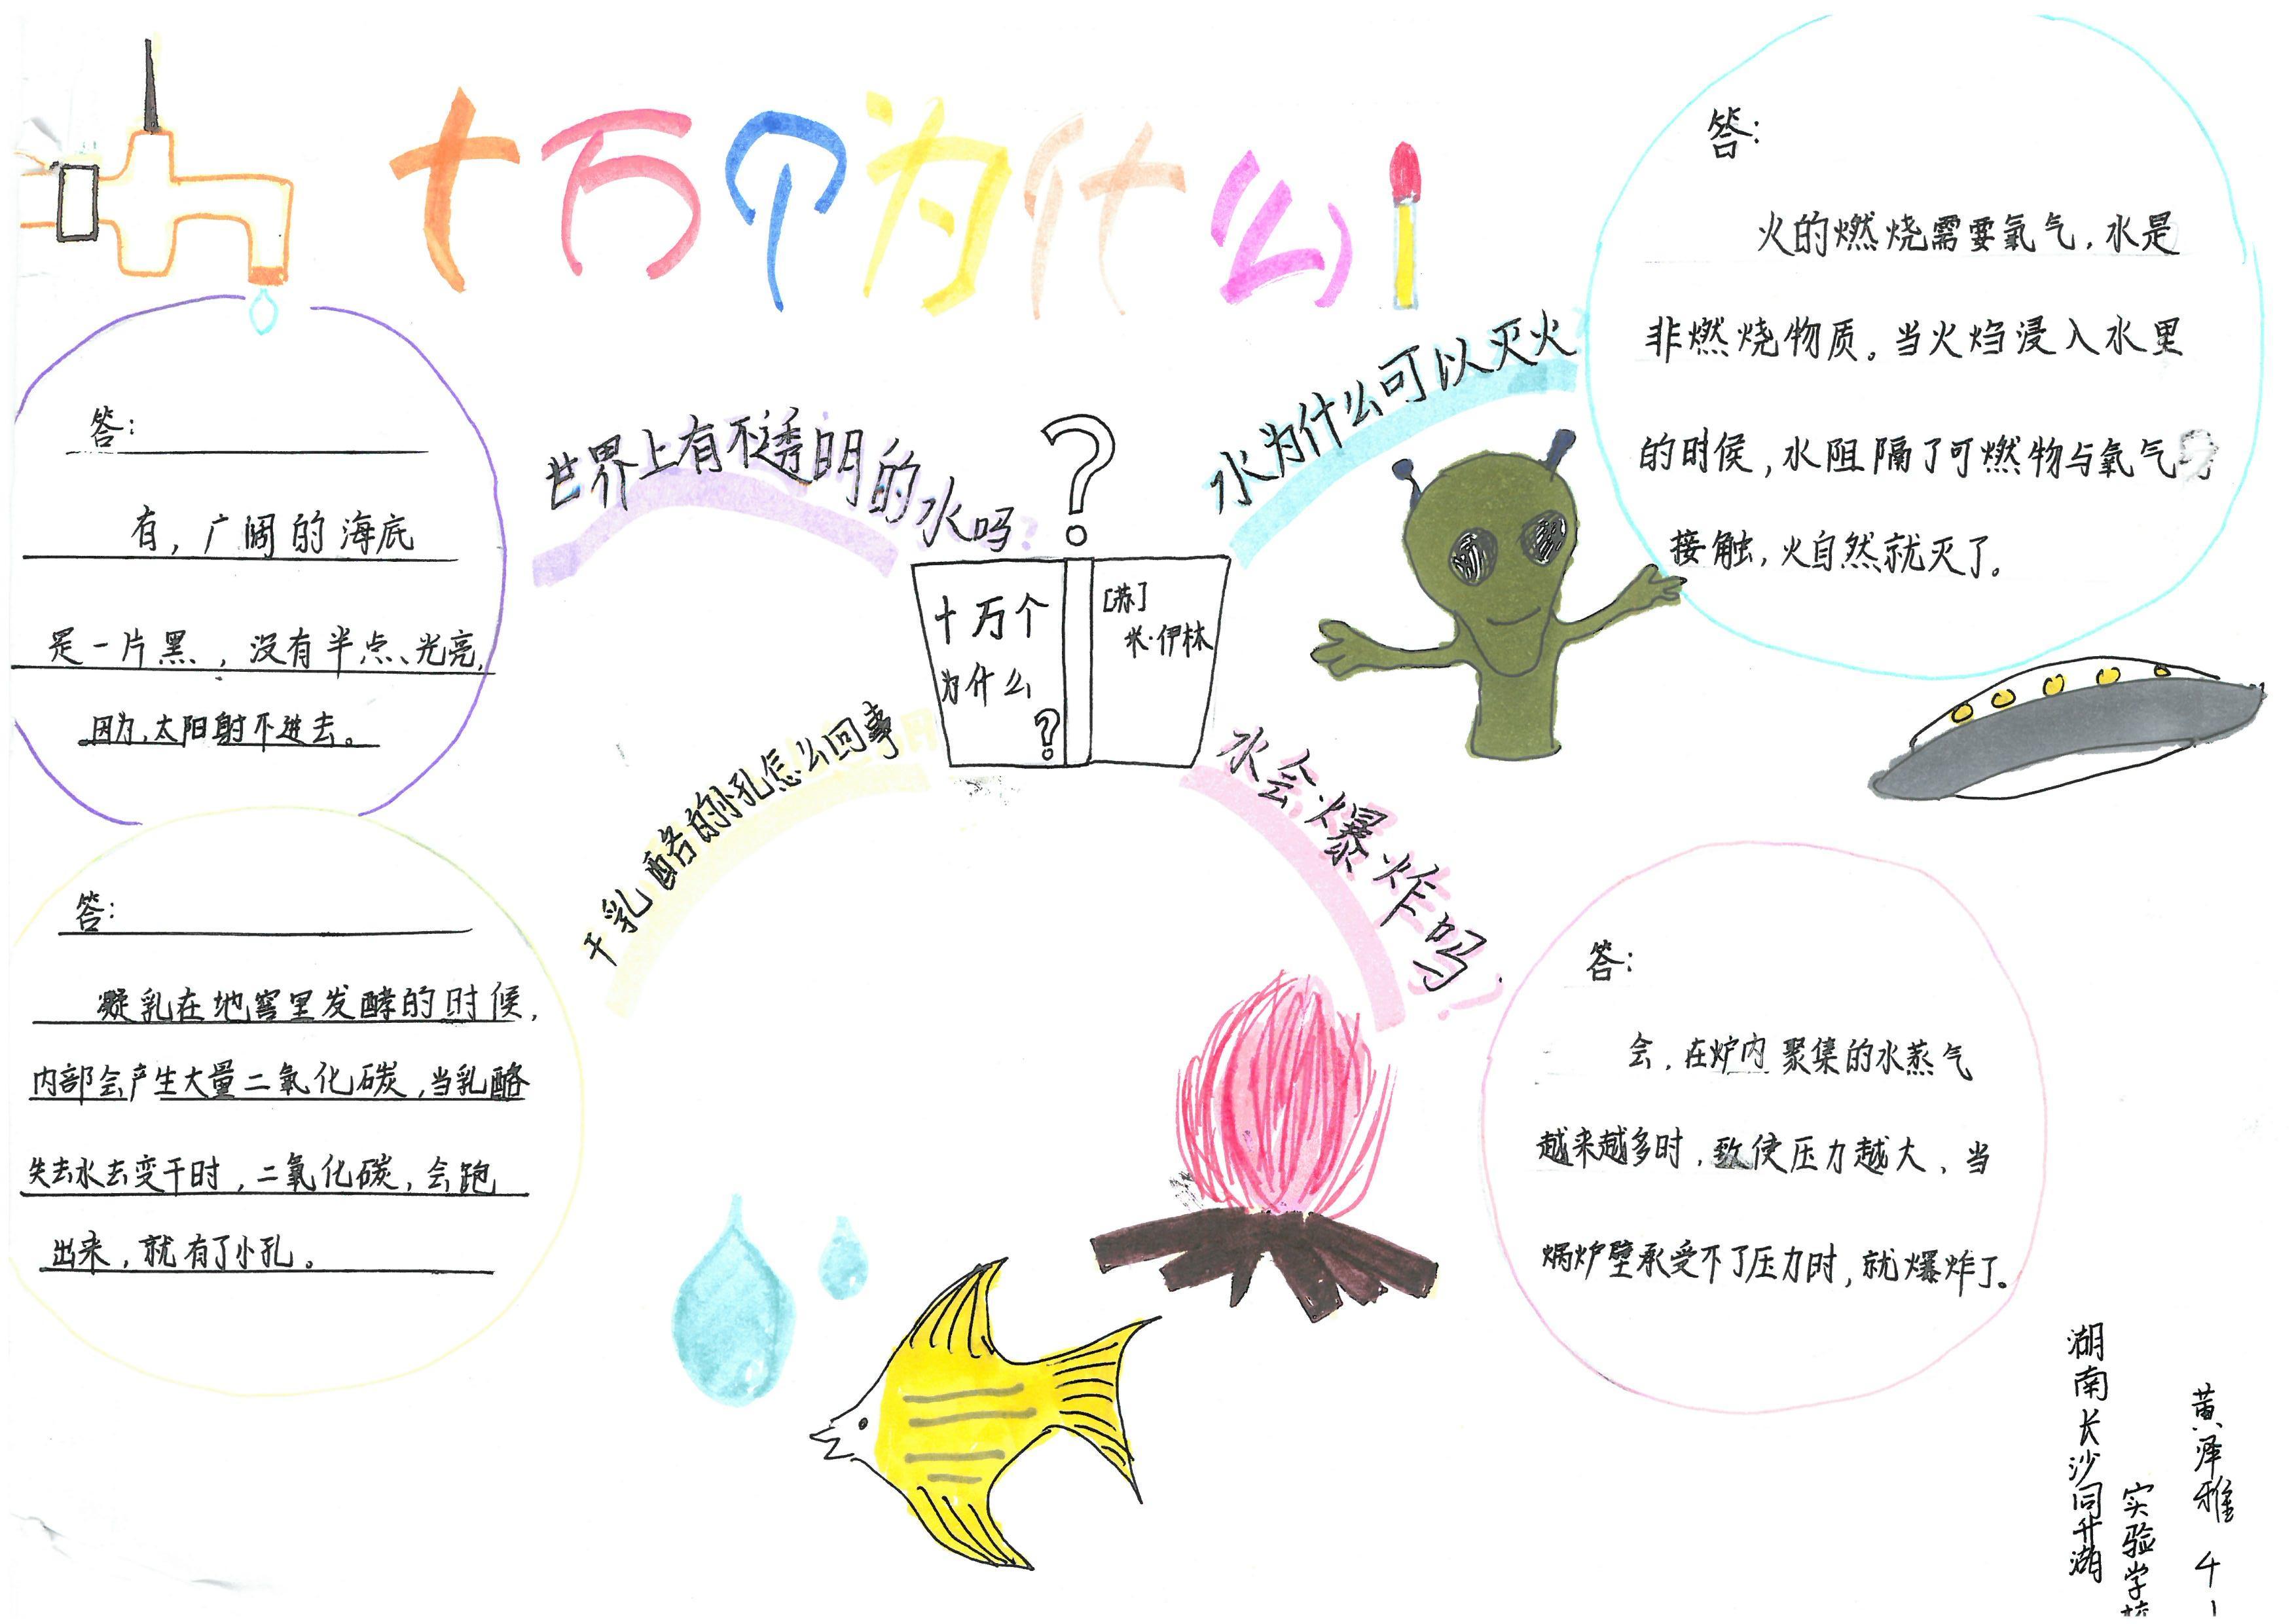 十万个为什么
世界上有不透明的水吗?
答:
有，广阔的海底
是一片黑，没有半点、光亮，
因为，太阳射不进去。
水为什么可以灭火
答:
火的燃烧需要氧气，水是
非燃烧物质。当火焰浸入水里
的时候，水阻隔了可燃物与氧气
接触，火自然就灭了。
?
十万个
为什么
?
[苏]
米·伊林
干乳酪的小孔怎么回事
答:
凝乳在地窖里发酵的时候，
内部会产生大量二氧化碳，当乳酪
失去水去变干时，二氧化碳，会跑
出来，就有了小孔。
水会爆炸吗?
答:
会，在炉内聚集的水蒸气
越来越多时，致使压力越大、当
锅炉壁承受不了压力时，就爆炸了。
湖南长沙同升湖
实验学校
黄泽雅 4 1